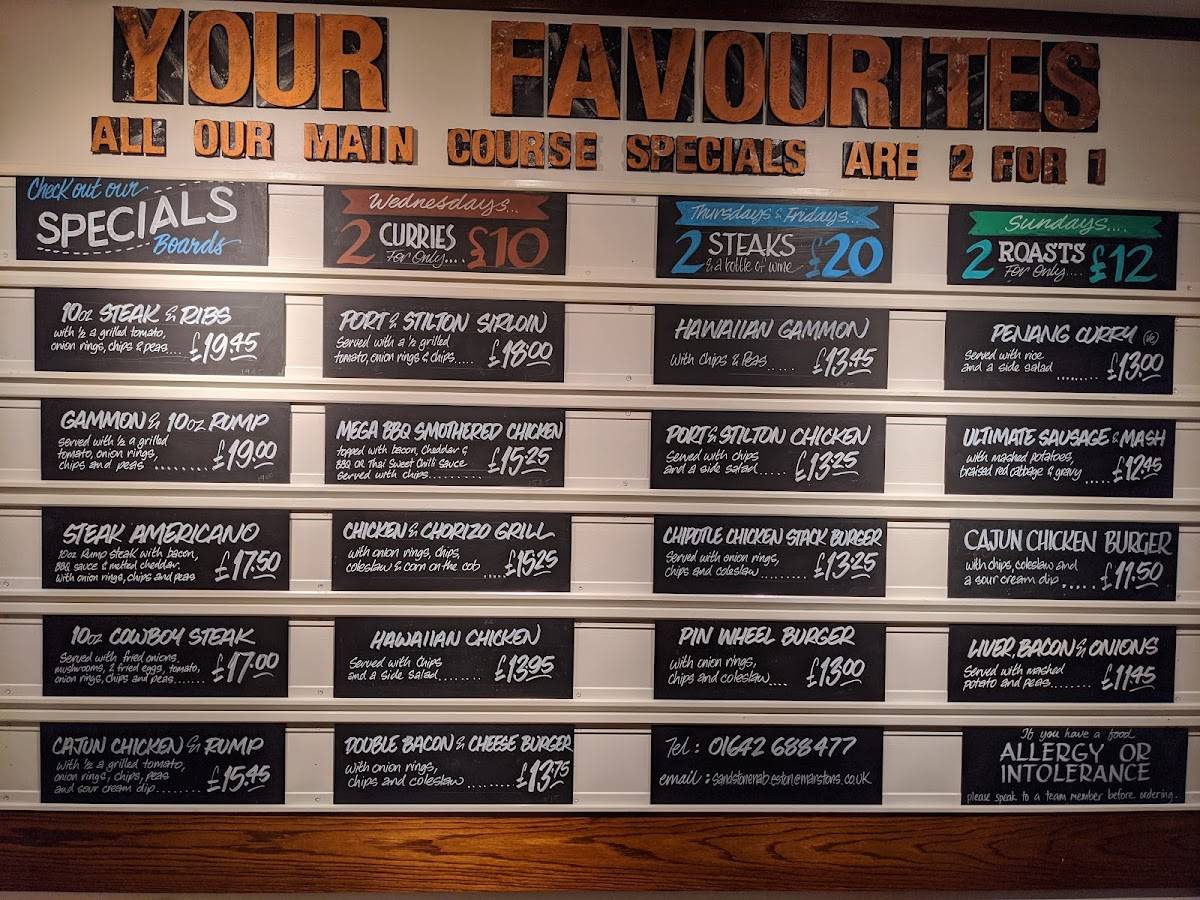 YOUR FAVOURITES
ALL OUR MAIN COURSE SPECIALS ARE 2 FOR 1
Check out our
SPECIALS
Boards
Wednesdays...
2 CURRIES £10
For Only....
Thursdays & Fridays...
2 STEAKS £20
& a bottle of wine
Sundays...
2 ROASTS £12
For Only....
10oz STEAK & RIBS
with ½ a grilled tomato,
onion rings, chips & peas.... £19.45
PORT & STILTON SIRLOIN
Served with a ½ grilled
tomato, onion rings & chips..... £18.00
HAWAIIAN GAMMON
with Chips & Peas..... £13.45
PENANG CURRY (ve)
Served with rice
and a side salad ........ £13.00
GAMMON & 10oz RUMP
Served with ½ a grilled
tomato, onion rings,
chips and peas ........ £19.00
MEGA BBQ SMOTHERED CHICKEN
topped with bacon, Cheddar &
BBQ OR Thai Sweet Chilli Sauce
served with chips.......... £15.25
PORT & STILTON CHICKEN
Served with chips
and a side salad...... £13.25
ULTIMATE SAUSAGE & MASH
with mashed potatoes,
braised red cabbage & gravy ..... £12.45
STEAK AMERICANO
10oz Rump Steak with bacon,
BBQ sauce & melted cheddar.
with onion rings, chips and peas £17.50
CHICKEN & CHORIZO GRILL
with onion rings, chips,
coleslaw & corn on the cob .... £15.25
CHIPOTLE CHICKEN STACK BURGER
Served with onion rings,
chips and coleslaw.......... £13.25
CAJUN CHICKEN BURGER
with chips, coleslaw and
a sour cream dip..... £11.50
10oz COWBOY STEAK
Served with fried onions,
mushrooms, 2 fried eggs, tomato,
onion rings, chips and peas....... £17.00
HAWAIIAN CHICKEN
Served with Chips
and a side Salad........ £13.95
PIN WHEEL BURGER
with onion rings,
chips and coleslaw.... £13.00
LIVER, BACON & ONIONS
Served with mashed
potato and peas........ £11.45
CAJUN CHICKEN & RUMP
with ½ a grilled tomato,
onion rings, chips, peas
and sour cream dip......... £15.45
DOUBLE BACON & CHEESE BURGER
with onion rings,
chips and coleslaw.......... £13.75
Tel: 01642 688477
email:
If you have a food
ALLERGY OR
INTOLERANCE
please speak to a team member before ordering.